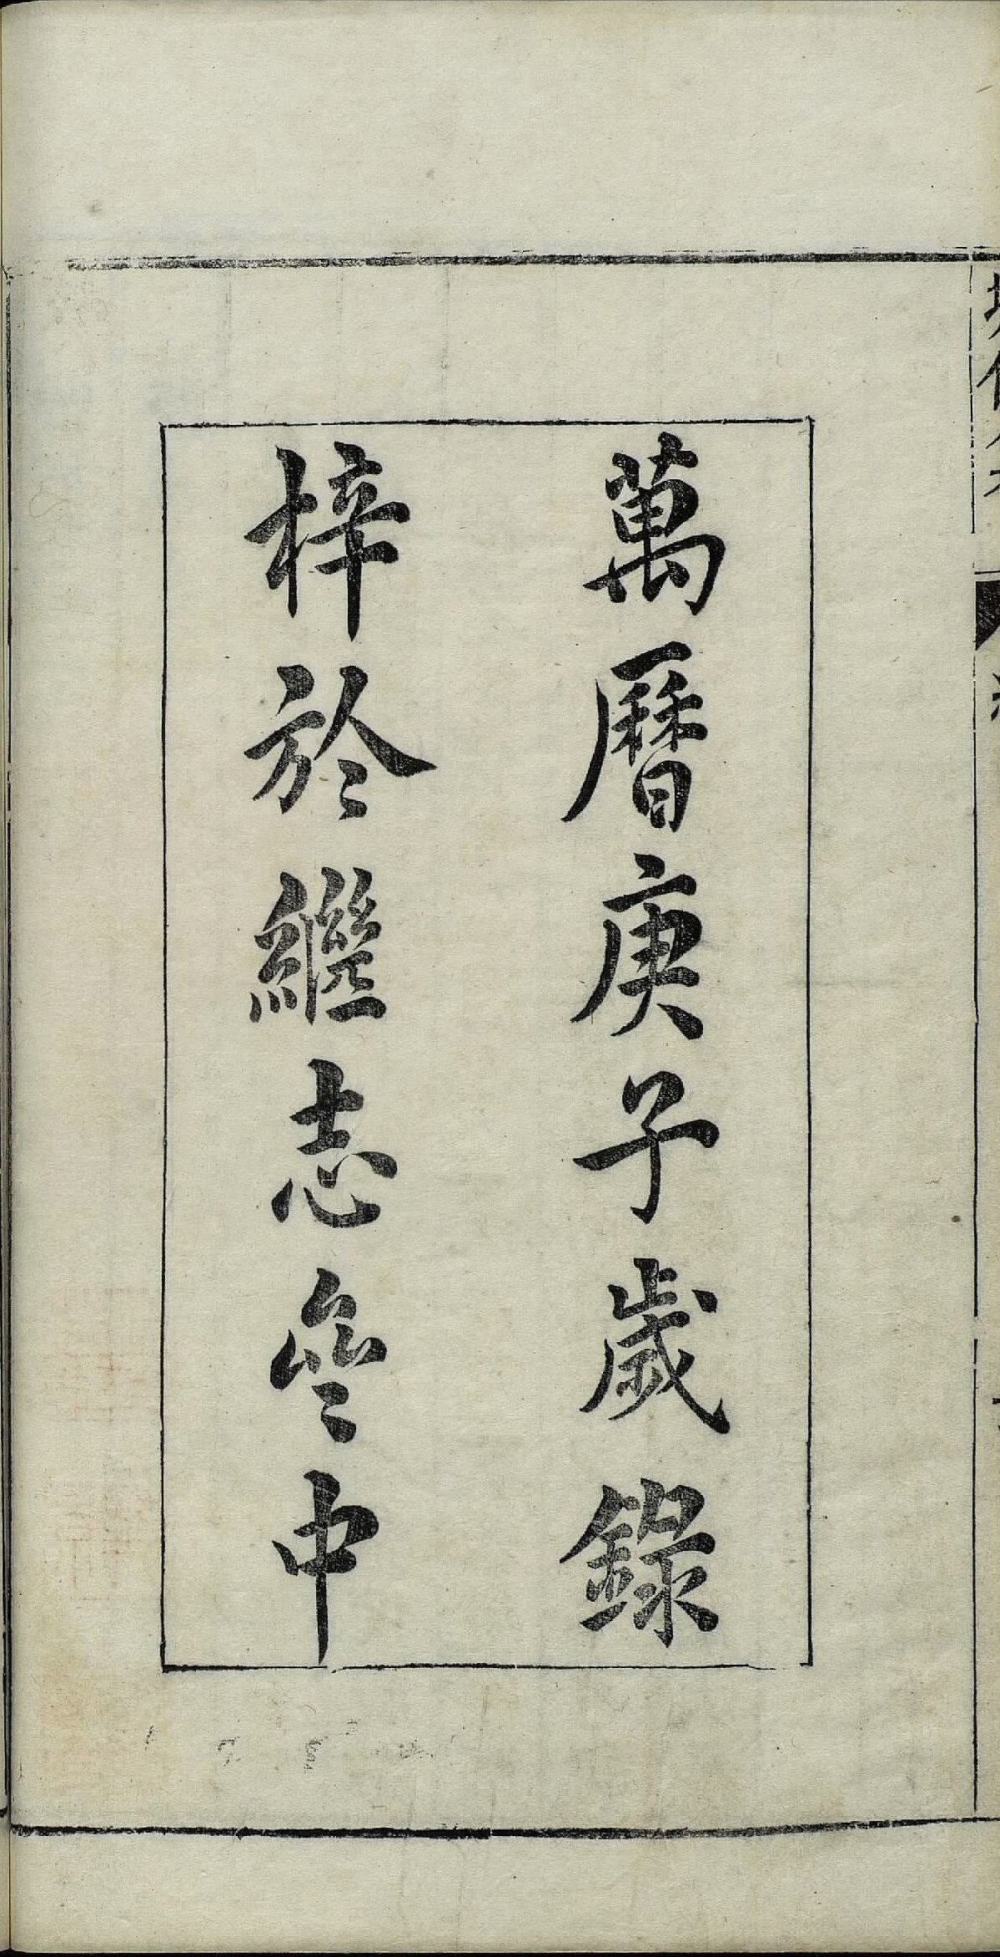 萬曆庚子歲錄
梓於繼志亝中